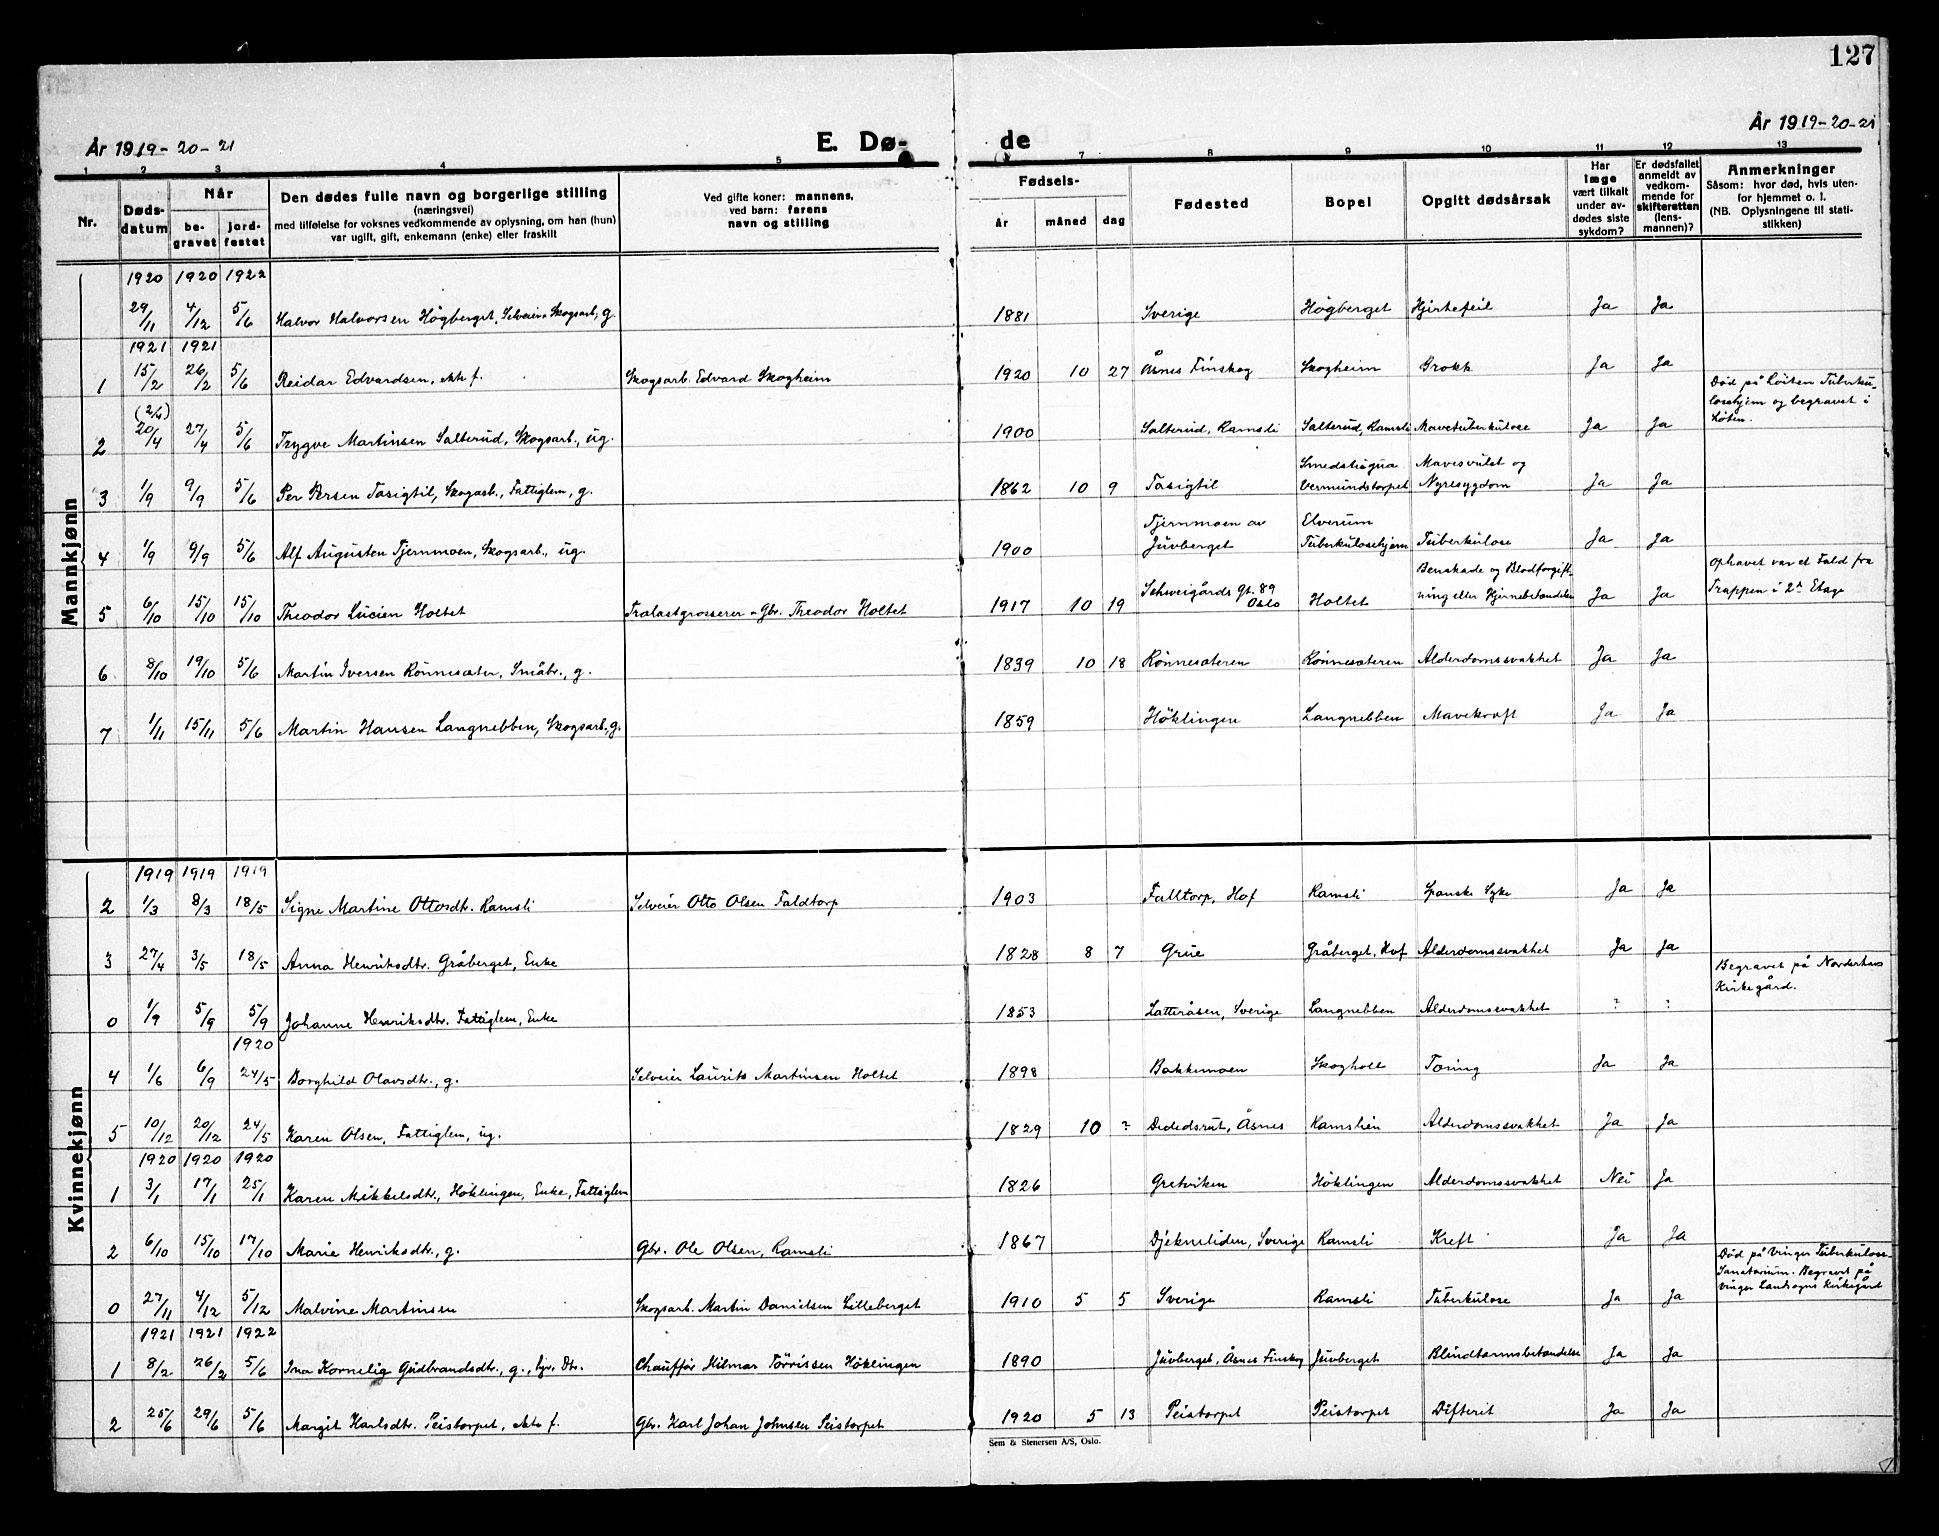 127
År 1919-20-21
E. Dø-
de
År 1919-20-21
1 2 3 4 5 7 8 9 10 11 12 13
Nr.
Døds-
datum
Når
be-
gravet
jord-
festet
Den dødes fulle navn og borgerlige stilling
(næringsvei)
med tilføielse for voksnes vedkommende av oplysning, om han (hun)
var ugift, gift, enkemann (enke) eller fraskilt
Ved gifte koner: mannens,
ved barn: farens
navn og stilling
Fødsels-
år måned dag
Fødested
Bopel
Opgitt dødsårsak
Har
læge
vært tilkalt
under av-
dødes siste
sykdom?
Er dødsfallet
anmeldt av
vedkom-
mende for
skifteretten
(lens-
mannen)?
Anmerkninger
Såsom: hvor død, hvis uten-
for hjemmet o. l.
(NB. Oplysningene til stati-
stikken)
Mannkjønn
1920 1920 1922
29/11 4/12 5/6 Halvor Halvorsen Högberget, Selveier, Skogsarb., g. 1881 Sverige Högberget Hjertefeil Ja Ja
1921 1921
1 15/2 26/2 5/6 Reidar Edvardsen, ekte f. Skogsarb. Edvard Skogheim 1920 10 27 Åsnes Finskog Skogheim Ja Ja
Død på Løiten Tuberku-
losehjem og begravet i
Løten.
(2/4)
2 20/4 27/4 5/6 Trygve Martinsen Salterud, Skogsarb., ug. 1900 Salterud, Ramsli Salterud, Ramsli Mavetuberkulose Ja Ja
3 1/9 9/9 5/6 Per Persen Tasigtil, Skogsarb., Fattiglem, g. 1862 10 9 Tasigtil Smedstugua
Vermundstorpet Mavesvulst og
Nyresygdom Ja Ja
4 1/9 9/9 5/6 Alf Augusten Tjernmoen, Skogsarb., ug. 1900 Tjernmoen av
Juvberget Elverum
Tuberkulosehjem Tuberkulose Ja Ja
5 6/10 15/10 15/10 Theodor Lucien Holtet Tralastgrosserer - Gbr. Theodor Holtet 1917 10 19 Schweigårds Gt. 89
Oslo Holtet Benskade og Blodforgift-
ning eller Hjernebetændelse Ja Ja
Ophavet var et Fald fra
Trappen i 2n Etage
6 8/10 19/10 5/6 Martin Iversen Rönnesæter, Småbr., g. 1839 10 18 Rönnesæteren Rönnesæteren Alderdomssvakhet Ja Ja
7 1/11 15/11 5/6 Martin Hansen Langnebben, Skogsarb., g. 1859 Höklingen Langnebben Mavekræft Ja Ja
Kvinnekjønn
1919 1919 1919
2 1/3 8/3 18/5 Signe Martine Ottosdt. Ramsli Selveier Otto Olsen Faldtorp 1903 Falltorp, Hof Ramsli Spanske Syke Ja Ja
3 27/4 3/5 18/5 Anna Henriksdtr. Gråberget, Enke 1828 8 7 Grue Gråberget, Hof Alderdomssvakhet Ja Ja
Begravet på Norderhus
Kirkegård.
0 1/9 5/9 5/9 Johanne Henriksdtr. Fattiglem, Enke 1853 Latteråsen, Sverige Langnebben Alderdomssvakhet ? ?
1920
4 1/6 6/9 24/5 Borghild Olavsdtr., g. Selveier Laurits Martinsen Holtet 1898 Bakkemoen Skogholt Tæring Ja Ja
5 10/12 20/12 24/5 Karen Olsen, Fattiglem, ug. 1829 10 ? Dededsrut, Åsnes Ramslien Alderdomssvakhet Ja Ja
1920 1920 1920
1 3/1 17/1 25/1 Karen Mikkelsdtr., Höklingen, Enke, Fattiglem 1826 Gretviken Höklingen Alderdomssvakhet Nei Ja
2 6/10 15/10 17/10 Marie Henriksdtr., g. Gbr. Ole Olsen, Ramsli 1867 Djekneliden, Sverige Ramsli Kreft Ja Ja
Død på Vinger Tuberkulose-
Sanatorium. Begravet på
Vinger Landsogns Kirkegård
0 27/11 4/12 5/12 Malvine Martinsen Skogsarb. Martin Danielsen Lilleberget 1910 5 5 Sverige Ramsli Tuberkulose Ja Ja
1921 1921 1922
1 8/2 26/2 5/6 Ina Kornelia Gudbrandsdtr., g. Chauffør Hilmar Törrissen Höklingen 1890 Juvberget, Åsnes Finskog Juvberget Blindtarmsbetændelse Ja Ja
2 25/6 29/6 5/6 Margit Karlsdtr. Peistorpet, ekte f. Gbr. Karl Johan Johnsen Peistorpet 1920 5 13 Peistorpet Peistorpet Difterit Ja Ja
Sem & Stenersen A/S, Oslo.